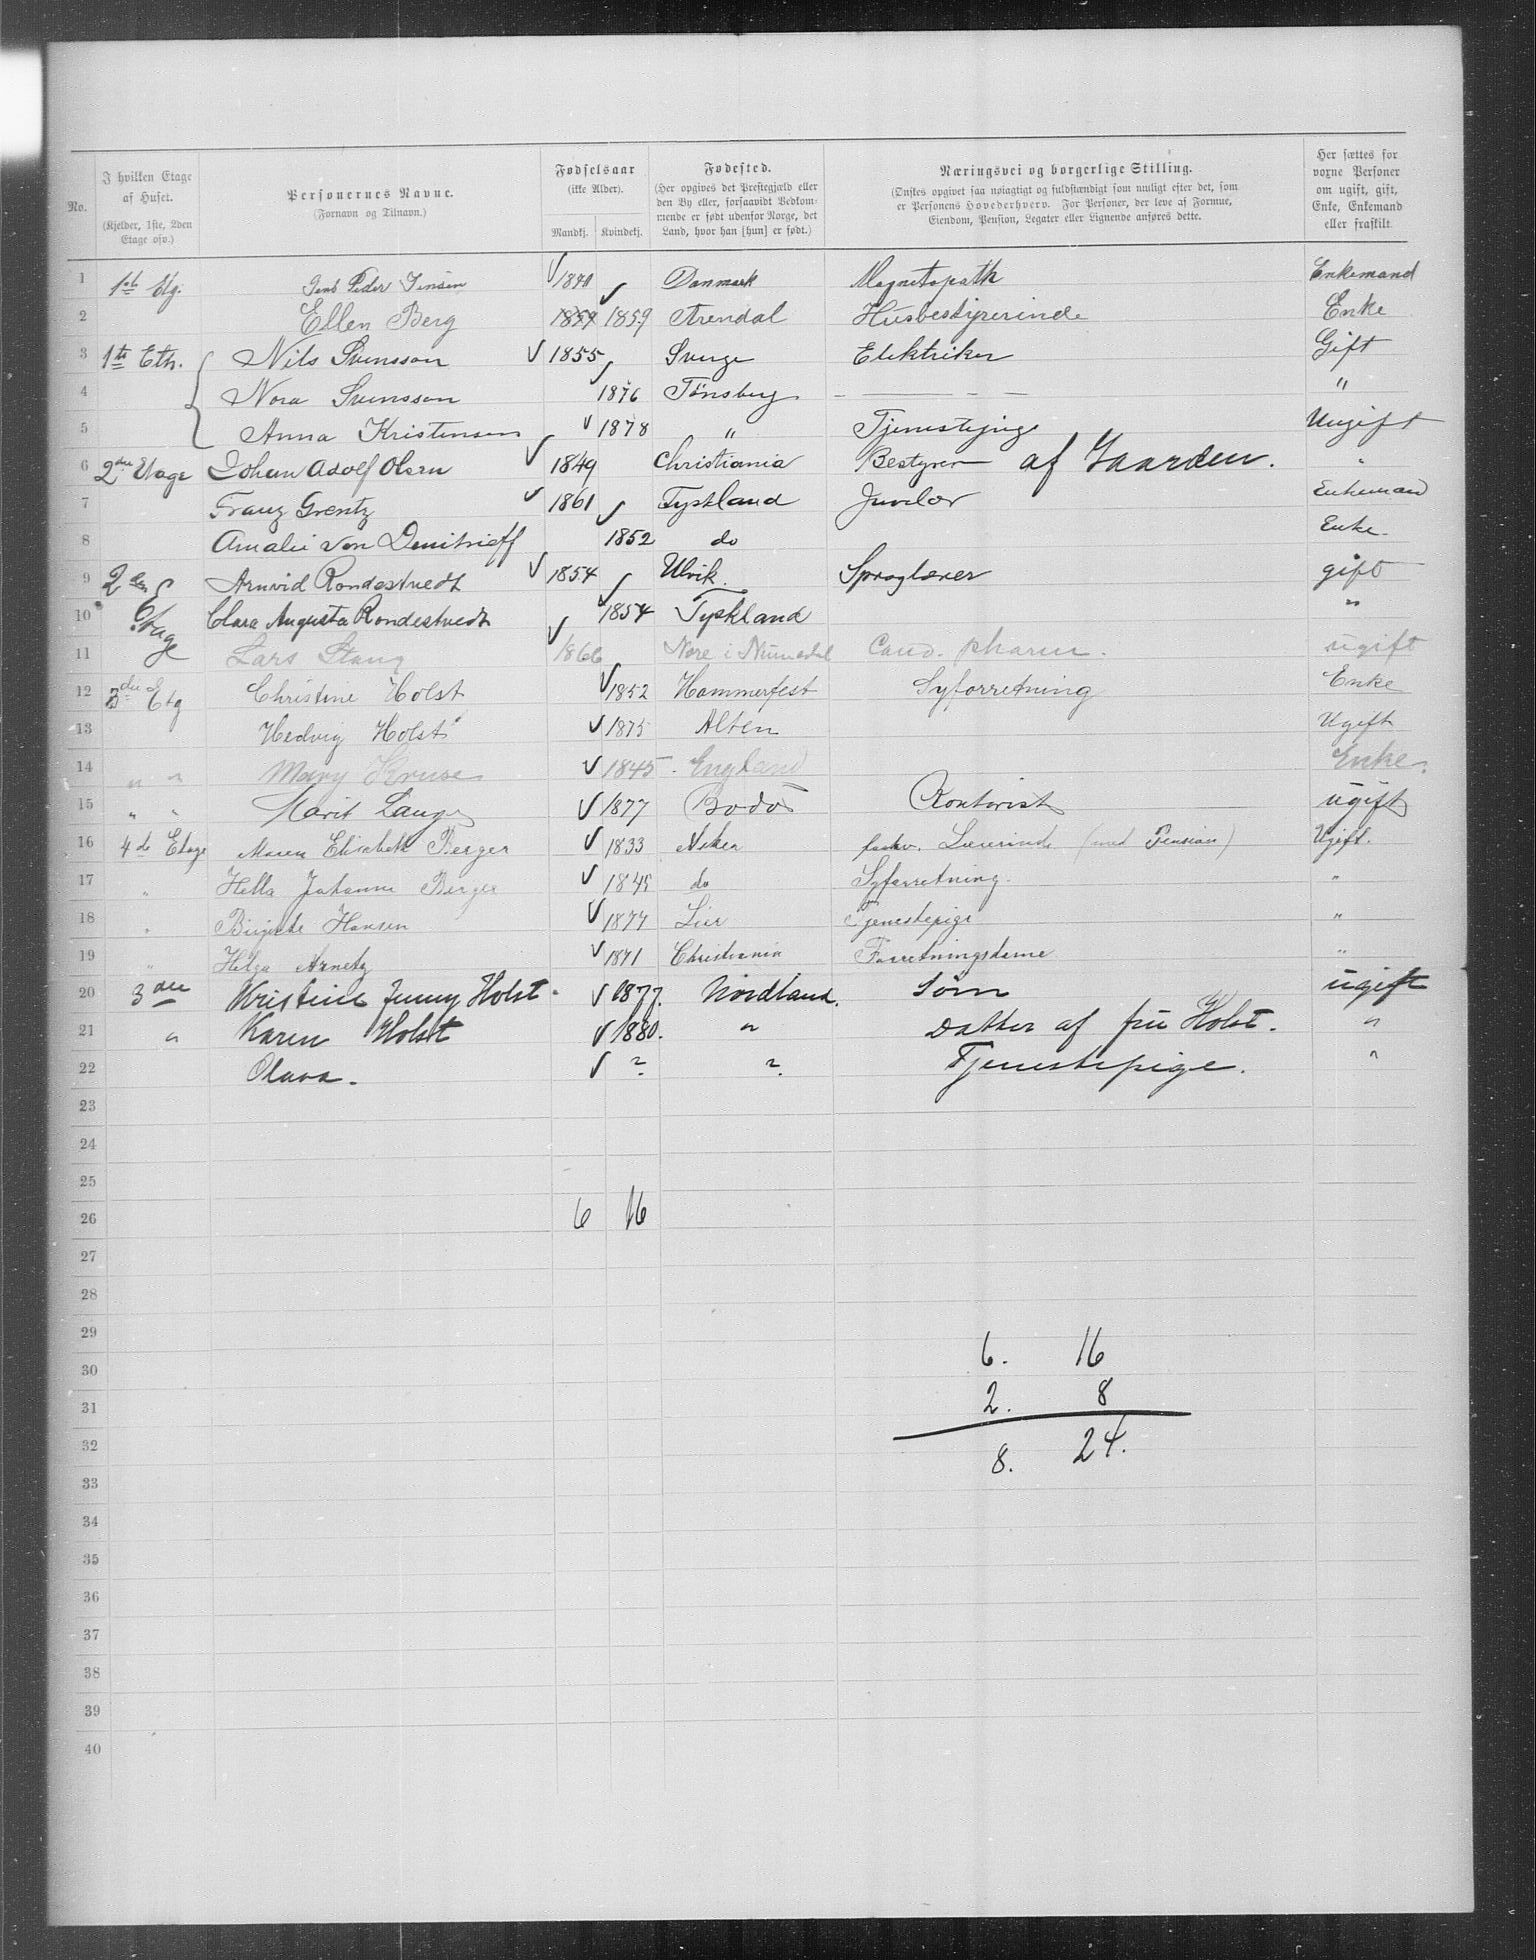 No.
I hvilken Etage af Huset.
(Kjelder, 1ste, 2den Etage osv.)
Personernes Navne.
(Fornavn og Tilnavn.)
Fødselsaar
(ikke Alder).
Mandkj. Kvindekj.
Fødested.
(Her opgives det Prestegjæld eller den By eller, forsaavidt Vedkommende er født udenfor Norge, det Land, hvor han [hun] er født.)
Næringsvei og borgerlige Stilling.
(Ønskes opgivet saa nøiagtigt og fuldstændigt som muligt efter det, som er Personens Hovederhverv. For Personer, der leve af Formue, Eiendom, Pension, Legater eller Lignende anføres dette.
Her sættes for voxne Personer om ugift, gift, Enke, Enkemand eller fraskilt.
1 1ste Etg. Jens Peder Jensen 1840 Danmark Magnetopath Enkemand
2 Ellen Berg 1859 1859 Arendal Husbestyrerinde Enke
3 1ste Eth. Nils Svensson 1855 Sverge Elektriker Gift
4 Nora Svensson 1876 Tønsberg - — - - "
5 Anna Kristensen 1878 " Tjenestepige Ungift
6 2den Etage Johan Adolf Olsen 1849 Christiania Bestyrer af Gaarden. "
7 Franz Grentz 1861 Tyskland Juveler Enkemand
8 Amalie von Demitrieff 1852 do Enke.
9 2den Etage Arnvid Rondestvedt 1854 Ulvik. Sproglærer gift
10 Clara Augusta Rondestvedt 1854 Tyskland "
11 Lars Stang 1866 Nore i Numedal Cand. pharm. ugift
12 3die Etg Christine Holst 1852 Hammerfest Syforretning Enke
13 Hedvig Holst 1875 Alten Ugift
14 " " Mary Kruse 1845 England Enke.
15 " " Marit Lange 1877 Bodø Kontorist ugift
16 4de Etage Maren Elisabeth Berger 1833 Aker forhv. Lærerinde (med Pension) Ugift.
17 " Hella Johanne Berger 1845 do Syforretning. "
18 " Birgitte Hansen 1877 Lier Tjenestepige "
19 " Helga Arnetz 1871 Christiania Forretningsdame "
20 3die Kristine Jenny Holst. 1877. Nordland. Søm ugift
21 " Karen Holst 1880. " Datter af fru Holst. "
22 Olava. ? ?. Tjenestepige. "
23
24
25
26 6 16
27
28
29
30 6. 16
31 2. 8
32 8. 24.
33
34
35
36
37
38
39
40